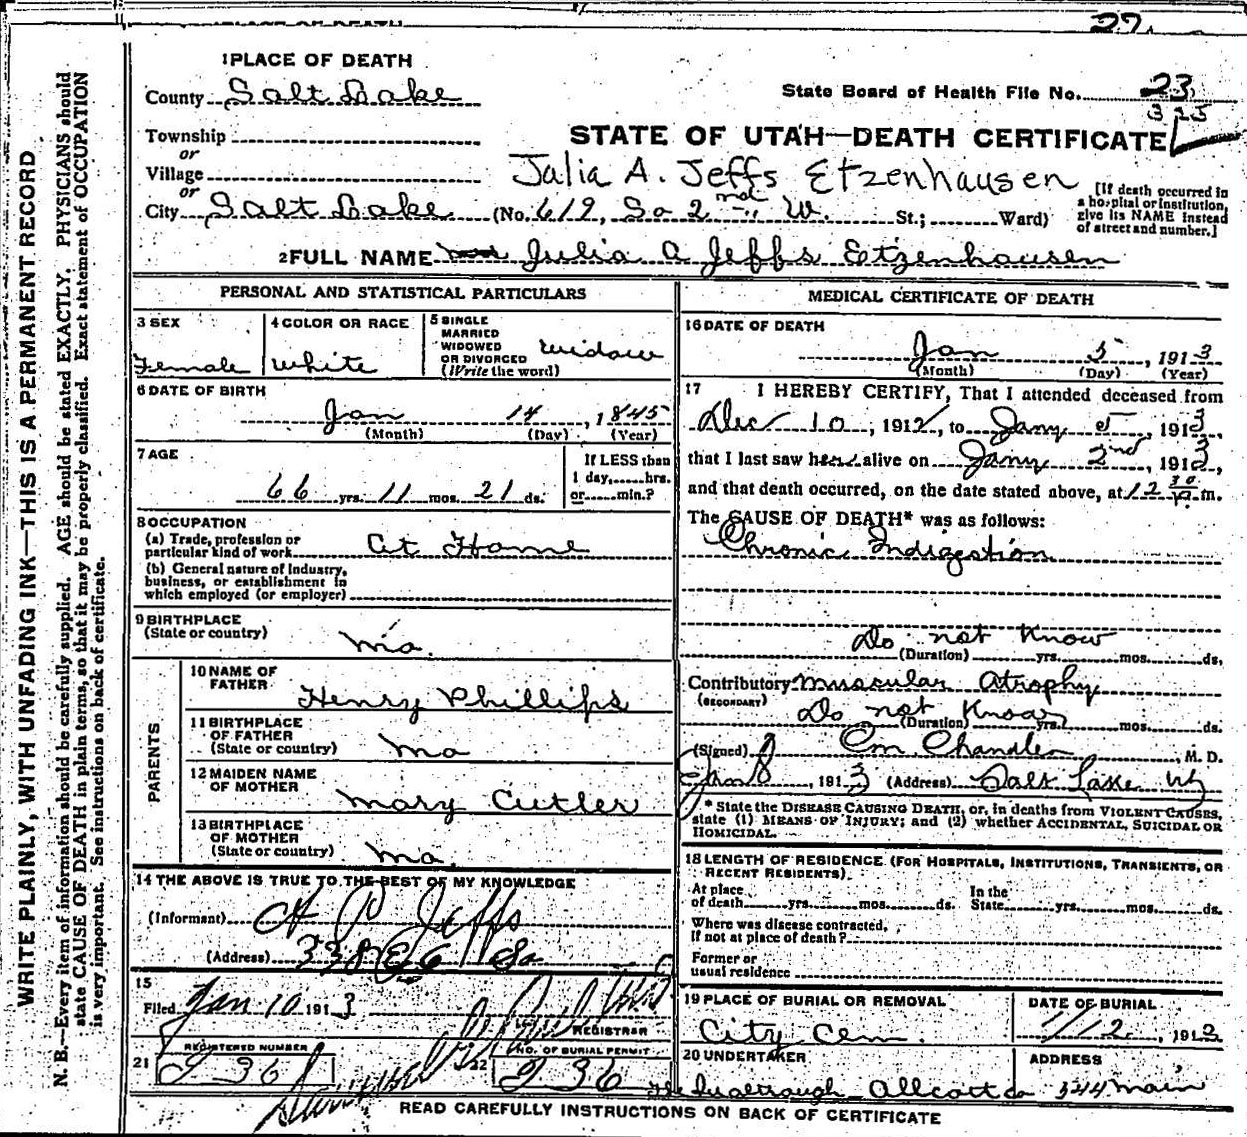 27
1 PLACE OF DEATH
County Salt Lake
State Board of Health File No. 23
325
Township
or
STATE OF UTAH—DEATH CERTIFICATE
Village
Julia A. Jeffs Etzenhausen
or
City Salt Lake (No. 619, So 2nd W. St.; Ward)
[If death occurred in
a hospital or institution,
give its NAME instead
of street and number.]
2 FULL NAME Julia A Jeffs Etzenhausen
PERSONAL AND STATISTICAL PARTICULARS
3 SEX
Female
4 COLOR OR RACE
White
5 SINGLE
MARRIED
WIDOWED
OR DIVORCED
(Write the word)
Widow
6 DATE OF BIRTH
Jan 14, 1845
(Month) (Day) (Year)
7 AGE
66 yrs. 11 mos. 21 ds.
If LESS than
1 day, hrs.
or min.?
8 OCCUPATION
(a) Trade, profession or
particular kind of work At Home
(b) General nature of industry,
business, or establishment in
which employed (or employer)
9 BIRTHPLACE
(State or country) Mo.
PARENTS
10 NAME OF
FATHER Henry Phillips
11 BIRTHPLACE
OF FATHER
(State or country) Mo
12 MAIDEN NAME
OF MOTHER Mary Cutler
13 BIRTHPLACE
OF MOTHER
(State or country) Mo.
14 THE ABOVE IS TRUE TO THE BEST OF MY KNOWLEDGE
(Informant) A P Jeffs
(Address) 338 E 6 So
15
Filed Jan 10 1913
REGISTRAR
21 REGISTERED NUMBER
J 36
22 NO. OF BURIAL PERMIT
J 36
MEDICAL CERTIFICATE OF DEATH
16 DATE OF DEATH
Jan 5, 1913
(Month) (Day) (Year)
17 I HEREBY CERTIFY, That I attended deceased from
Dec 10, 1912, to Jany 5, 1913,
that I last saw her alive on Jany 2nd, 1913,
and that death occurred, on the date stated above, at 12 30 m.
The CAUSE OF DEATH* was as follows:
Chronic Indigestion
Do not Know
(Duration) yrs. mos. ds.
Contributory Muscular Atrophy
(SECONDARY)
Do not Know
(Duration) yrs. mos. ds.
(Signed) Chandler, M. D.
Jan 8, 1913 (Address) Salt Lake
* State the DISEASE CAUSING DEATH, or, in deaths from VIOLENT CAUSES,
state (1) MEANS OF INJURY; and (2) whether ACCIDENTAL, SUICIDAL OR
HOMICIDAL.
18 LENGTH OF RESIDENCE (FOR HOSPITALS, INSTITUTIONS, TRANSIENTS, OR
RECENT RESIDENTS).
At place
of death yrs. mos. ds.
In the
State yrs. mos. ds.
Where was disease contracted,
if not at place of death?
Former or
usual residence
19 PLACE OF BURIAL OR REMOVAL
City Cem.
DATE OF BURIAL
1/12, 1913
20 UNDERTAKER
Allcott Co
ADDRESS
344 Main
READ CAREFULLY INSTRUCTIONS ON BACK OF CERTIFICATE
WRITE PLAINLY, WITH UNFADING INK—THIS IS A PERMANENT RECORD
N. B.—Every item of information should be carefully supplied. AGE should be stated EXACTLY. PHYSICIANS should
state CAUSE OF DEATH in plain terms, so that it may be properly classified. Exact statement of OCCUPATION
is very important. See instructions on back of certificate.